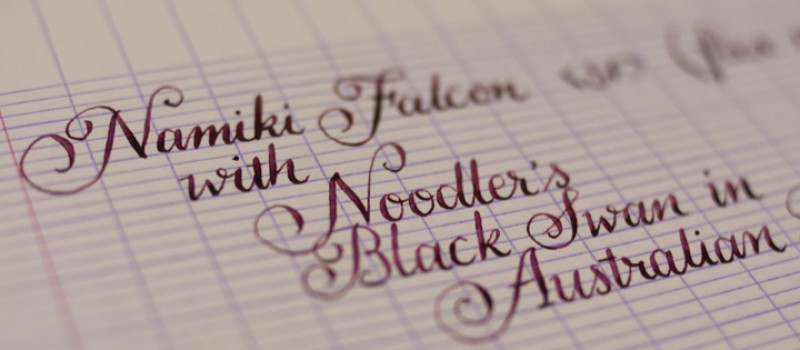 Namiki Falcon
with Noodler's
Black Swan in
Australian